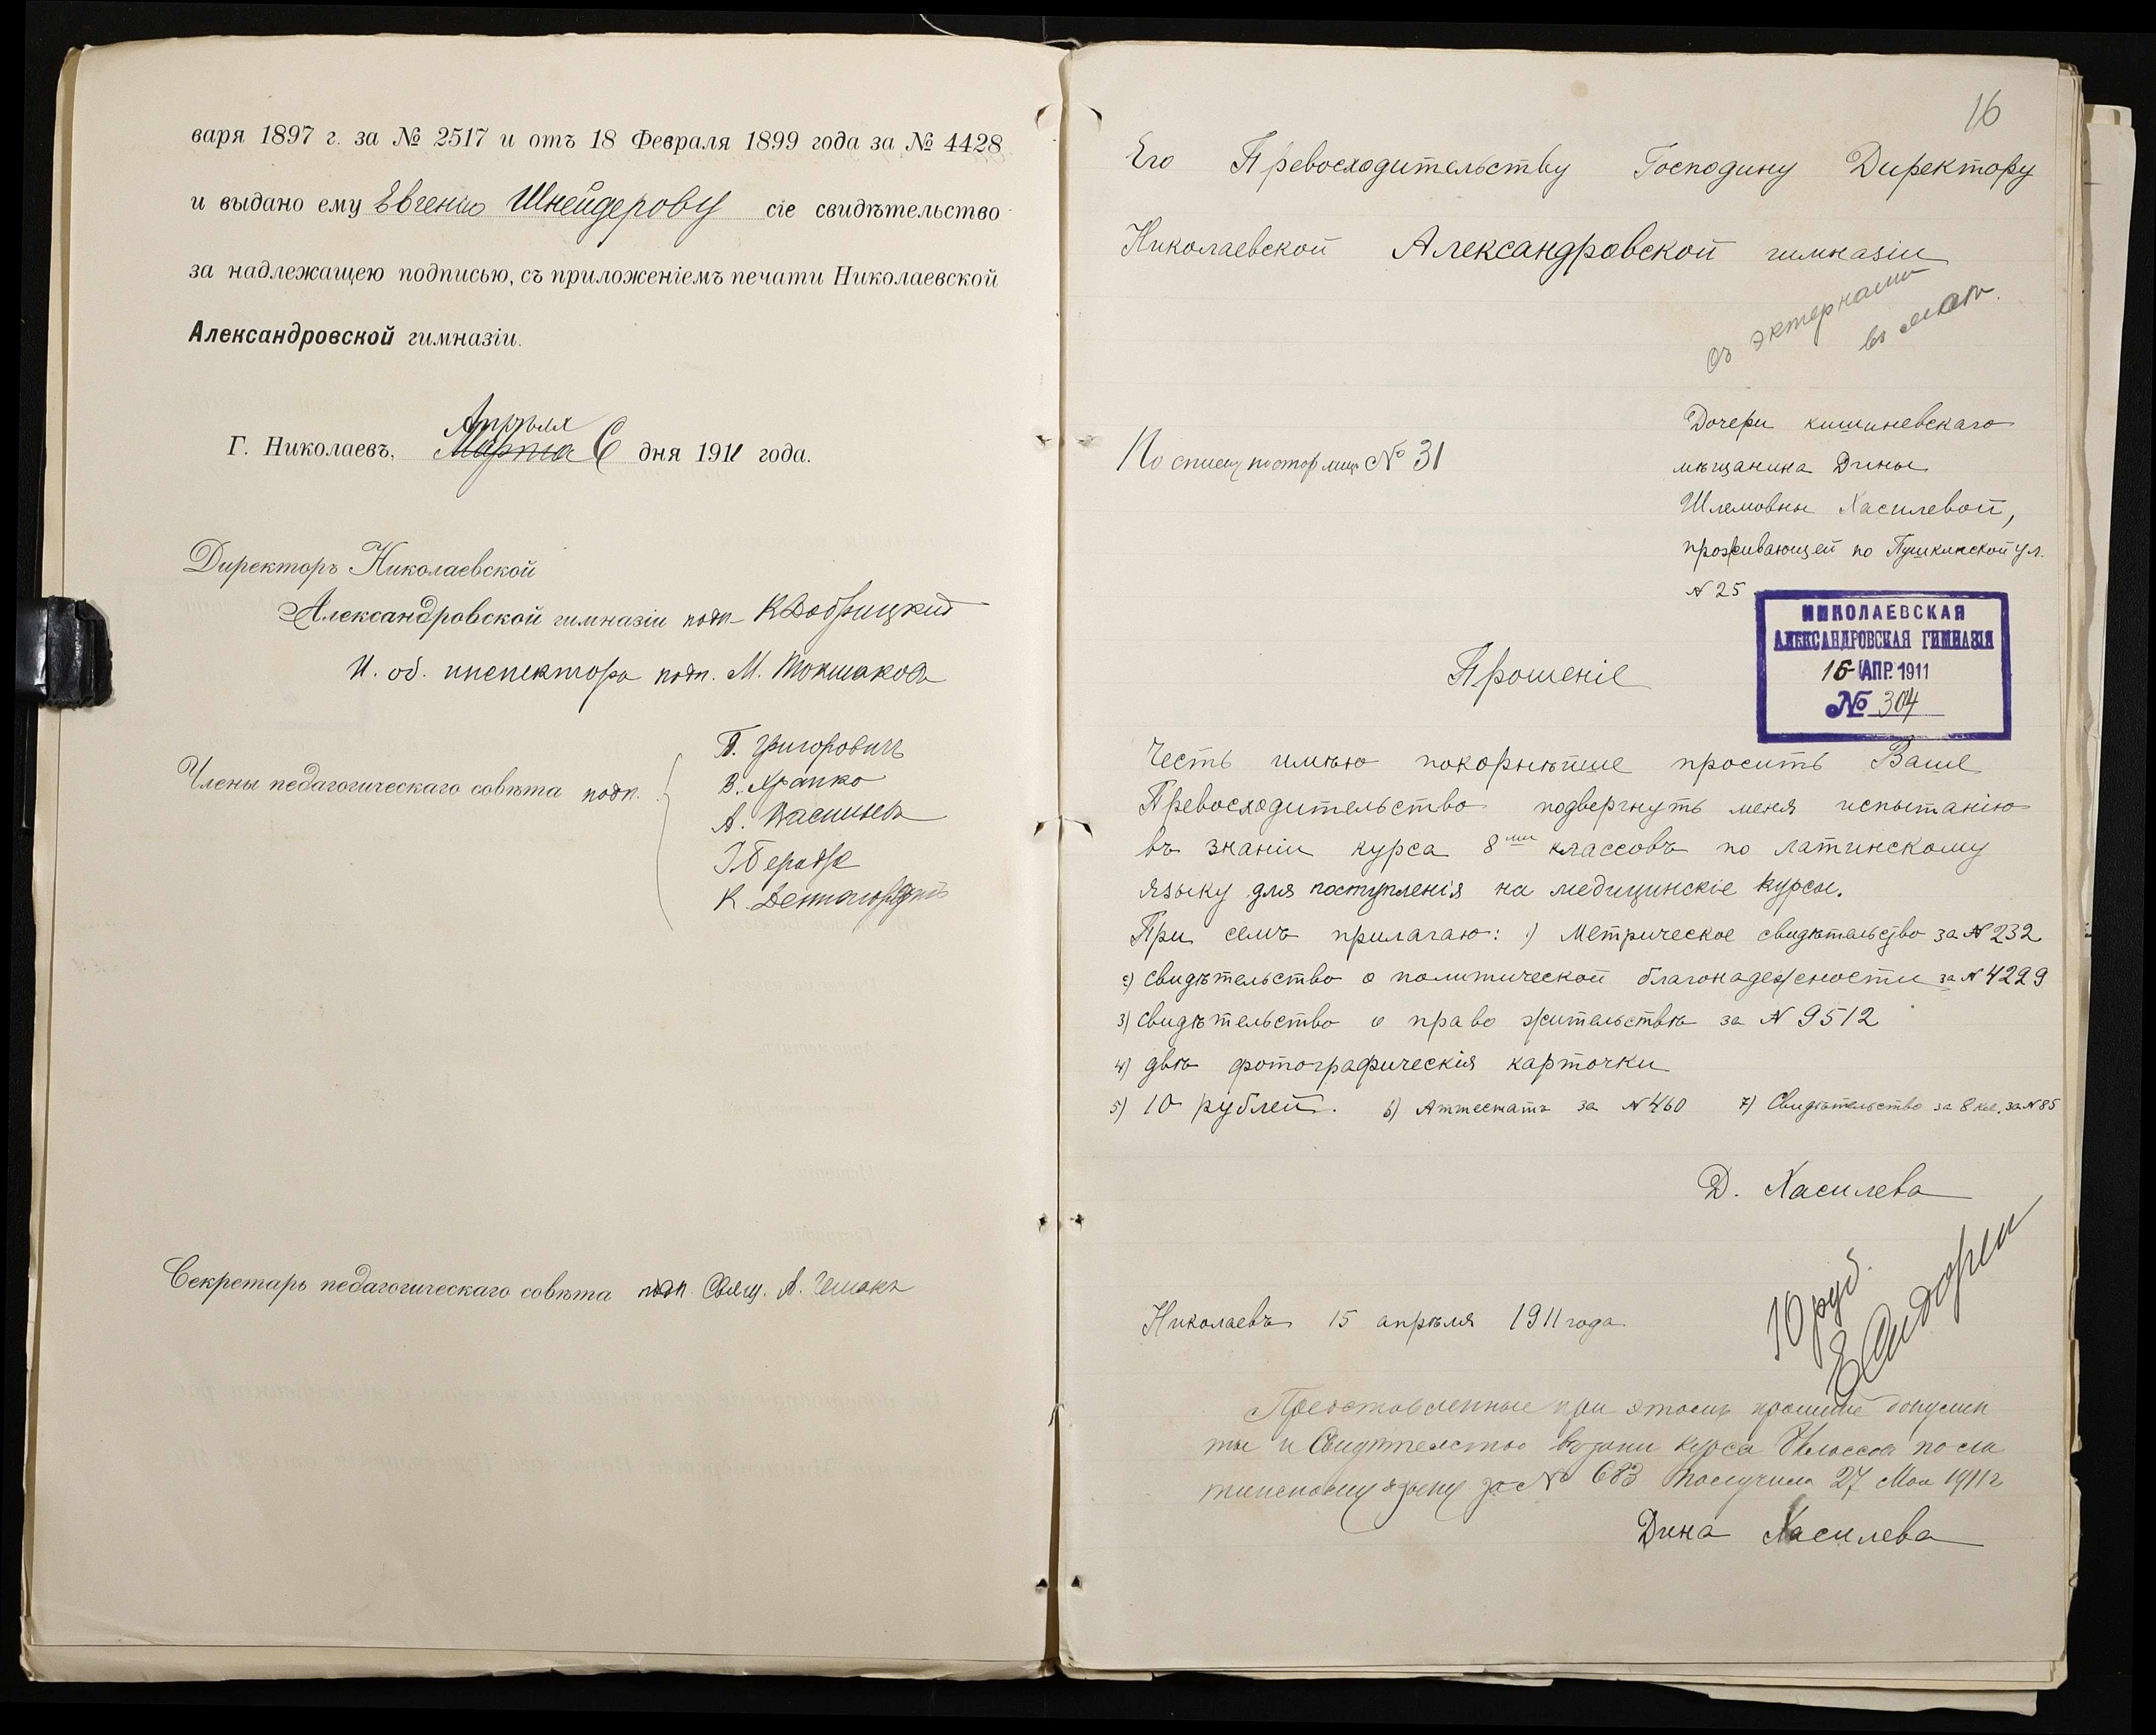 варя 1897 г. за № 2517 и отъ 18 Февраля 1899 года за № 4428
и выдано ему Евгенію Шнейдерову сіе свидѣтельство
за надлежащею подписью, съ приложеніемъ печати Николаевской
Александровской гимназіи.
Апрѣля
Г. Николаевъ, Марта 6 дня 1911 года.
Директоръ Николаевской
Александровской гимназіи подп. К Добрицкій
И. об. инспектора подп. М. Токмаковъ
Члены педагогическаго совѣта подп.
П. Григоровичъ
В. Храпко
А.
К.
Секретарь педагогическаго совѣта подп. Свящ. А.
16
Его Превосходительству Господину Директору
Николаевской Александровской гимназіи
съ экстернами
въ
По списку постор лицъ № 31
Дочери кишиневскаго
мѣщанина Дины
Шлемовны Хасилевой,
проживающей по Пушкинской ул.
№ 25
НИКОЛАЕВСКАЯ
АЛЕКСАНДРОВСКАЯ ГИМНАЗІЯ
15 АПР. 1911
№ 304
Прошеніе
Честь имѣю покорнѣйше просить Ваше
Превосходительство подвергнуть меня испытанію
въ знаніи курса 8ми классовъ по латинскому
языку для поступленія на медицинскіе курсы.
При семъ прилагаю: 1) Метрическое свидѣтельство за № 232
2) свидѣтельство о политической благонадежности за № 4299
3) свидѣтельство о право жительствѣ за № 9512
4) двѣ фотографическія карточки
5) 10 рублей. 6) Аттестатъ за № 460 7) Свидѣтельство за 8 кл. за № 85
Д. Хасилева
10 руб.
Николаевъ 15 апрѣля 1911 года
Представленные при этомъ прошеніе докумен
ты и Свидѣтельство курса 8 классовъ по ла
тинскому языку за № 683 получила 27 Мая 1911 г
Дина Хасилева